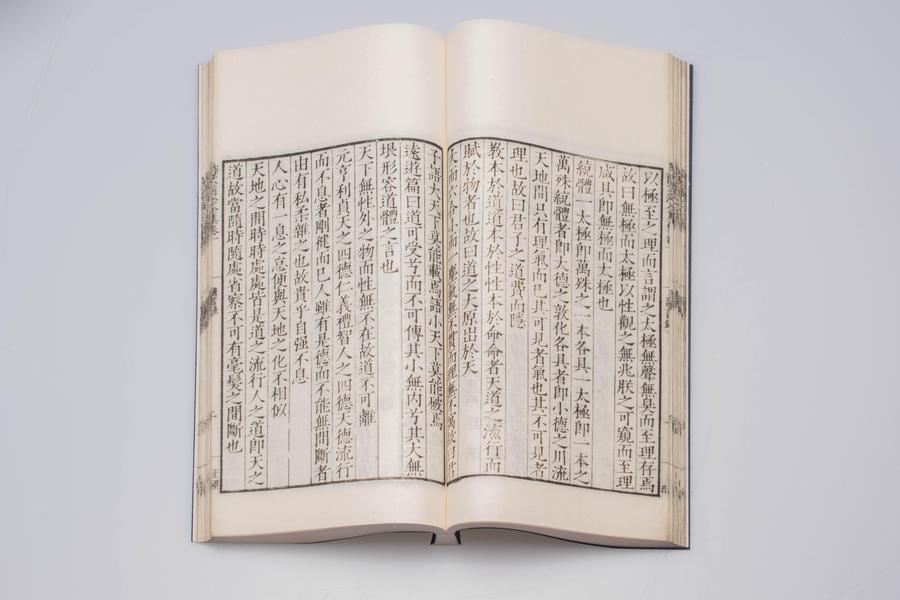 以極至之理而言謂之太極無聲無臭而至理存焉
故曰無極而太極以性觀之無兆朕之可窺而至理
咸具即無極而太極也
統體一太極即萬殊之一本各具一太極即一本之
萬殊統體者即大德之敦化各具者即小德之川流
天地間只有理氣而已其可見者氣也其不可見者
理也故曰君子之道費而隱
教本於道道本於性性本於命命者天道之流行而
賦於物者也故曰道之大原出於天
無不
子語大天下莫能載焉語小天下莫能破焉
遠遊篇曰道可受兮而不可傳其小無內兮其大無
垠形容道體之言也
天下無性外之物而性無不在故道不可離
元亨利貞天之四德仁義禮智人之四德天德流行
而不息者剛健而已人雖有是德而不能無間斷者
由有私柔雜之也故貴乎自强不息
人心有一息之怠便與天地之化不相似
天地之間時時處處皆是道之流行人之道即天之
道故當隨時隨處省察不可有毫髮之間斷也